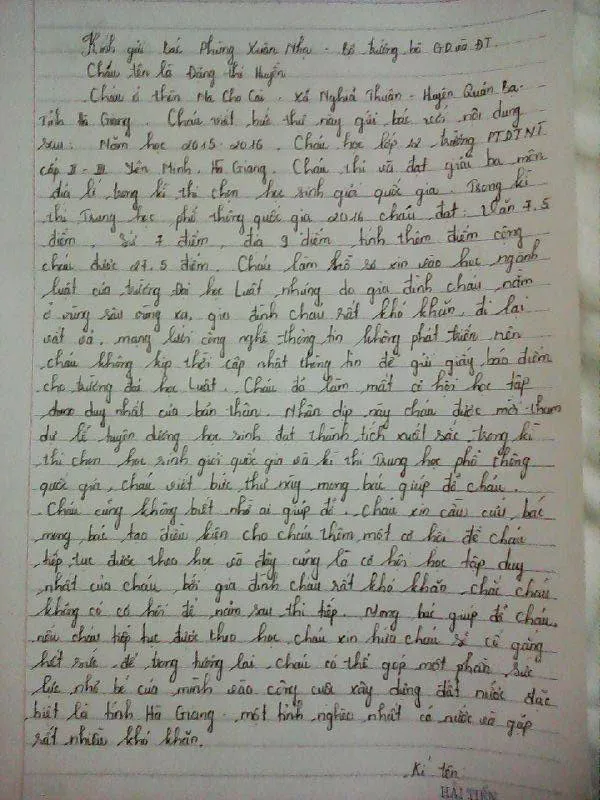 Kính gửi bác Phùng Xuân Nhạ - Bộ trưởng bộ GD và ĐT.
Cháu tên là Đặng Thị Huyền
Cháu ở thôn Na Cho Cai - Xã Nghĩa Thuận - Huyện Quản Bạ -
Tỉnh Hà Giang. Cháu viết bức thư này gửi bác với nội dung
sau: Năm học 2015-2016. Cháu học lớp 12 trường PTDTNT
cấp II - III Yên Minh. Hà Giang. Cháu thi và đạt giải ba môn
địa lí trong kì thi chọn học sinh giỏi quốc gia. Trong kì
thi Trung học phổ thông quốc gia 2016 cháu đạt: Văn 7.5
điểm, Sử 7 điểm, địa 9 điểm tính thêm điểm cộng
cháu được 27.5 điểm. Cháu làm hồ sơ xin vào học ngành
luật của trường Đại học Luật, nhưng do gia đình cháu nằm
ở vùng sâu vùng xa, gia đình cháu rất khó khăn, đi lại
vất vả, mạng lưới công nghệ thông tin không phát triển nên
cháu không kịp thời cập nhật thông tin để gửi giấy báo điểm
cho trường đại học Luật. Cháu đã làm mất cơ hội học tập
duy nhất của bản thân. Nhân dịp này cháu được mời tham
dự lễ tuyên dương học sinh đạt thành tích xuất sắc trong kì
thi chọn học sinh giỏi quốc gia và kì thi Trung học phổ thông
quốc gia, cháu viết bức thư này mong bác giúp đỡ cháu.
Cháu cũng không biết nhờ ai giúp đỡ. Cháu xin cầu cứu bác
mong bác tạo điều kiện cho cháu thêm một cơ hội để cháu
tiếp tục được theo học và đây cũng là cơ hội học tập duy
nhất của cháu, bởi gia đình cháu rất khó khăn, chắc cháu
không có cơ hội để năm sau thi tiếp. Mong bác giúp đỡ cháu,
nếu cháu tiếp tục được theo học, cháu xin hứa cháu sẽ cố gắng
hết sức để trong tương lai cháu có thể góp một phần sức
lực nhỏ bé của mình vào công cuộc xây dựng đất nước đặc
biệt là tỉnh Hà Giang một tỉnh nghèo nhất cả nước và gặp
rất nhiều khó khăn.
Kí tên
HẢI TIẾN